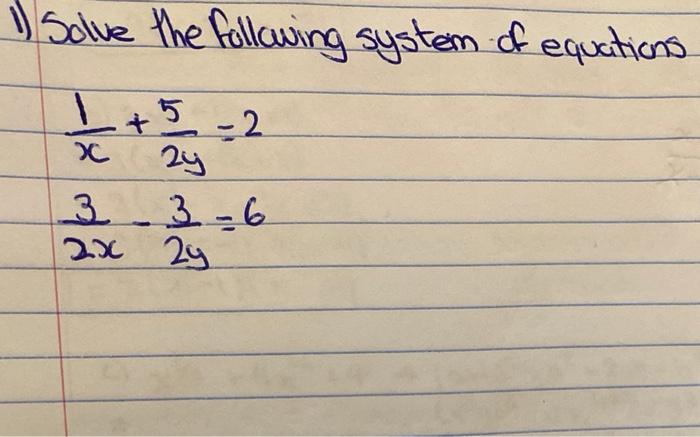 1) Solve the following system of equations
1/x + 5/2y = 2
3/2x - 3/2y = 6